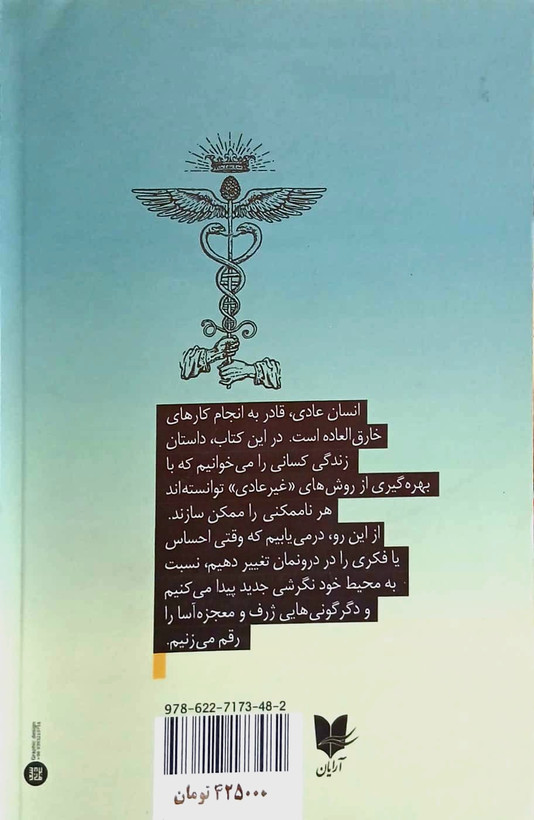 انسان عادی، قادر به انجام کارهای
خارق‌العاده است. در این کتاب، داستان
زندگی کسانی را می‌خوانیم که با
بهره‌گیری از روش‌های «غیرعادی» توانسته‌اند
هر ناممکنی را ممکن سازند.
از این رو، درمی‌یابیم که وقتی احساس
یا فکری را در درونمان تغییر دهیم، نسبت
به محیط خود نگرشی جدید پیدا می‌کنیم
و دگرگونی‌هایی ژرف و معجزه‌آسا را
رقم می‌زنیم.
978-622-7173-48-2
۴۲۵۰۰۰ تومان
آرایان
Graphic design